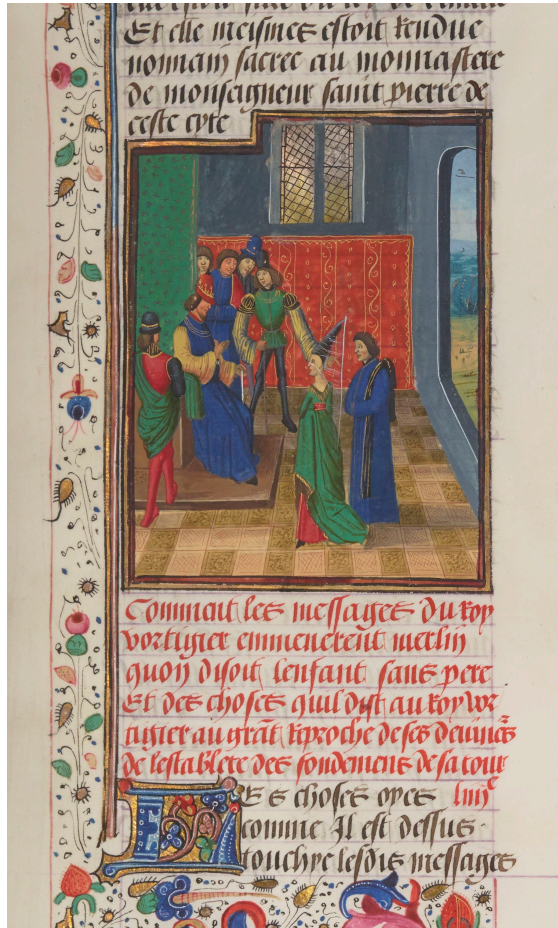 Et elle meismes estoit Rendue
nonnain sacree au monnastere
de monseigneur saint pierre de
ceste cyte
Comment les messages du roy
vortigier emmenerent merlin
quon disoit lenfant sans pere
Et des choses quil dist au Roy vor
tigier au grãt Reproche de ses deuines
de lestablete des fondemens de sa tour
liiij
Es choses oyes
comme Il est dessus
touchye lesdis messages